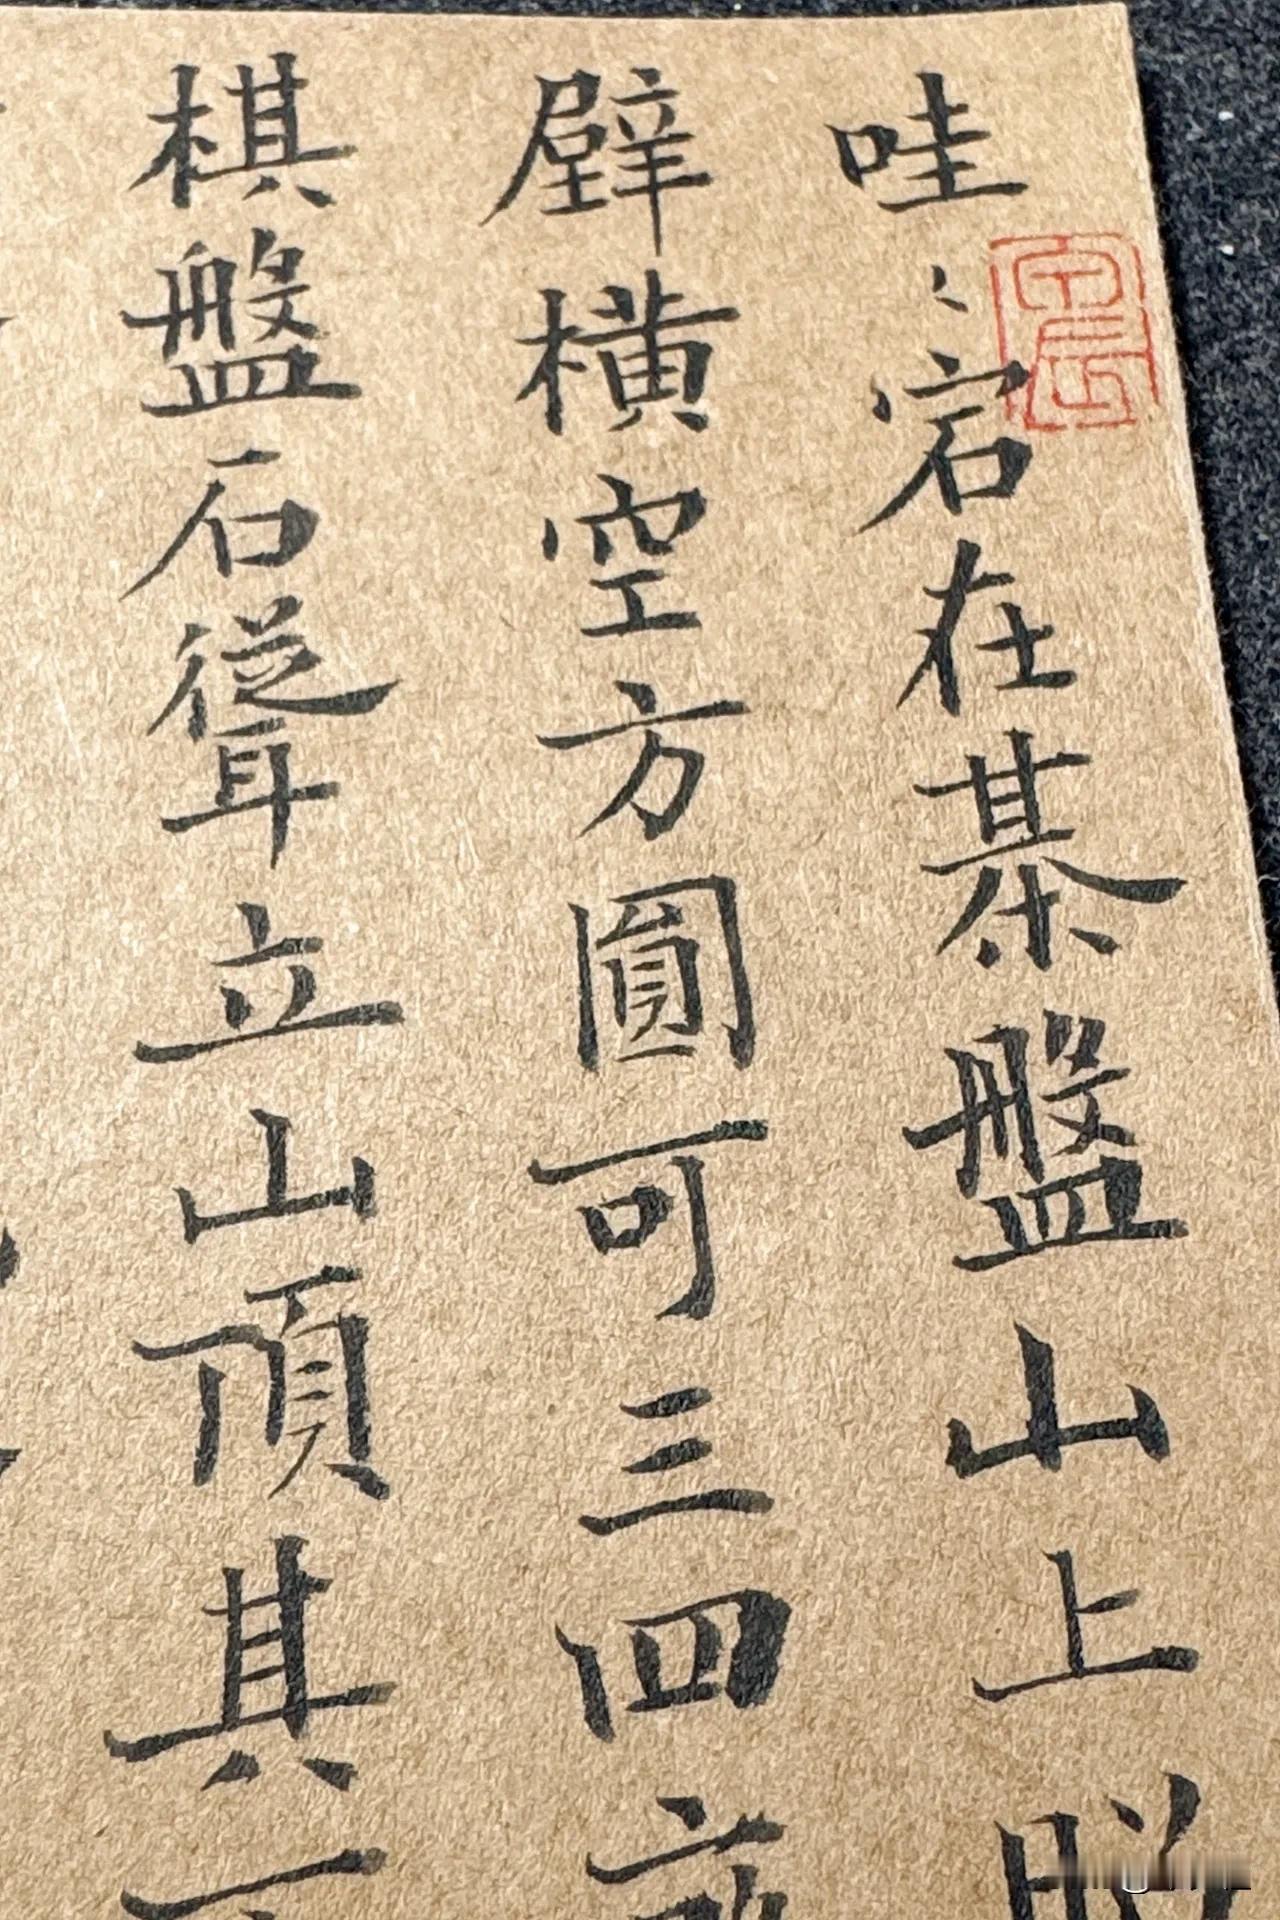 哇〻宕在棊盤山上
壁橫空方圓可三四
棋盤石從耳立山頂其